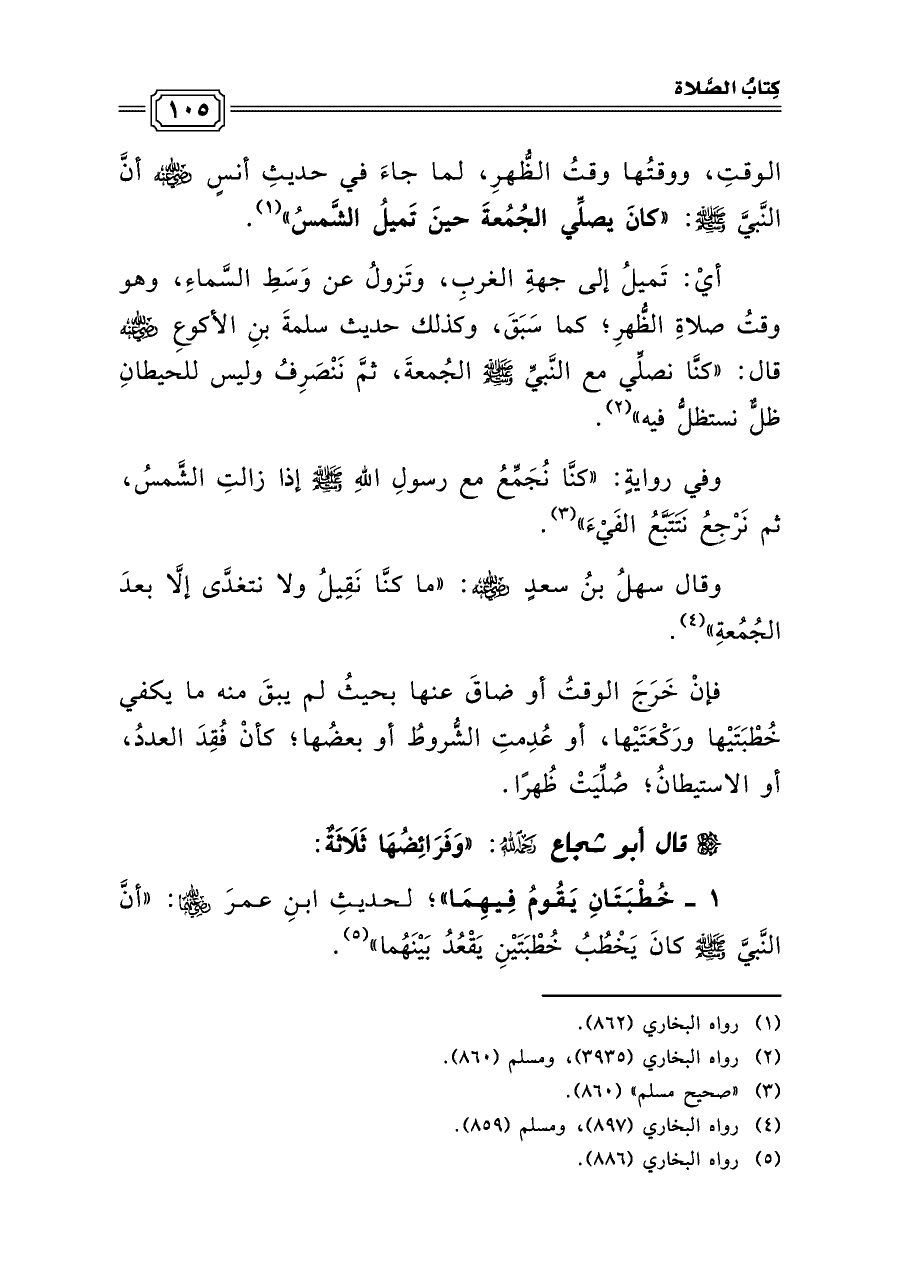 كِتابُ الصَّلاة
١٠٥
الوقتِ، ووقتُها وقتُ الظُّهرِ، لما جاءَ في حديثِ أنسٍ رضي الله عنه أنَّ
النَّبيَّ ﷺ: «كانَ يصلِّي الجُمُعةَ حينَ تَميلُ الشَّمسُ»(١).
أيْ: تَميلُ إلى جهةِ الغربِ، وتَزولُ عن وَسَطِ السَّماءِ، وهو
وقتُ صلاةِ الظُّهرِ؛ كما سَبَقَ، وكذلك حديث سلمةَ بنِ الأكوعِ رضي الله عنه
قال: «كنَّا نصلِّي مع النَّبيِّ ﷺ الجُمعةَ، ثمَّ نَنْصَرِفُ وليس للحيطانِ
ظلٌّ نستظلُّ فيه»(٢).
وفي روايةٍ: «كنَّا نُجَمِّعُ مع رسولِ اللهِ ﷺ إذا زالتِ الشَّمسُ،
ثم نَرْجِعُ نَتَتَبَّعُ الفَيْءَ»(٣).
وقال سهلُ بنُ سعدٍ رضي الله عنه: «ما كنَّا نَقِيلُ ولا نتغدَّى إلَّا بعدَ
الجُمُعةِ»(٤).
فإنْ خَرَجَ الوقتُ أو ضاقَ عنها بحيثُ لم يبقَ منه ما يكفي
خُطْبَتَيْها ورَكْعَتَيْها، أو عُدِمتِ الشُّروطُ أو بعضُها؛ كأنْ فُقِدَ العددُ،
أو الاستيطانُ؛ صُلِّيَتْ ظُهرًا.
قال أبو شجاع رحمه الله: «وَفَرَائِضُهَا ثَلَاثَةٌ:
١ ـ خُطْبَتَانِ يَقُومُ فِيهِمَا»؛ لحديثِ ابنِ عمرَ رضي الله عنهما: «أنَّ
النَّبيَّ ﷺ كانَ يَخْطُبُ خُطْبَتَيْنِ يَقْعُدُ بَيْنَهُما»(٥).
(١) رواه البخاري (٨٦٢).
(٢) رواه البخاري (٣٩٣٥)، ومسلم (٨٦٠).
(٣) «صحيح مسلم» (٨٦٠).
(٤) رواه البخاري (٨٩٧)، ومسلم (٨٥٩).
(٥) رواه البخاري (٨٨٦).